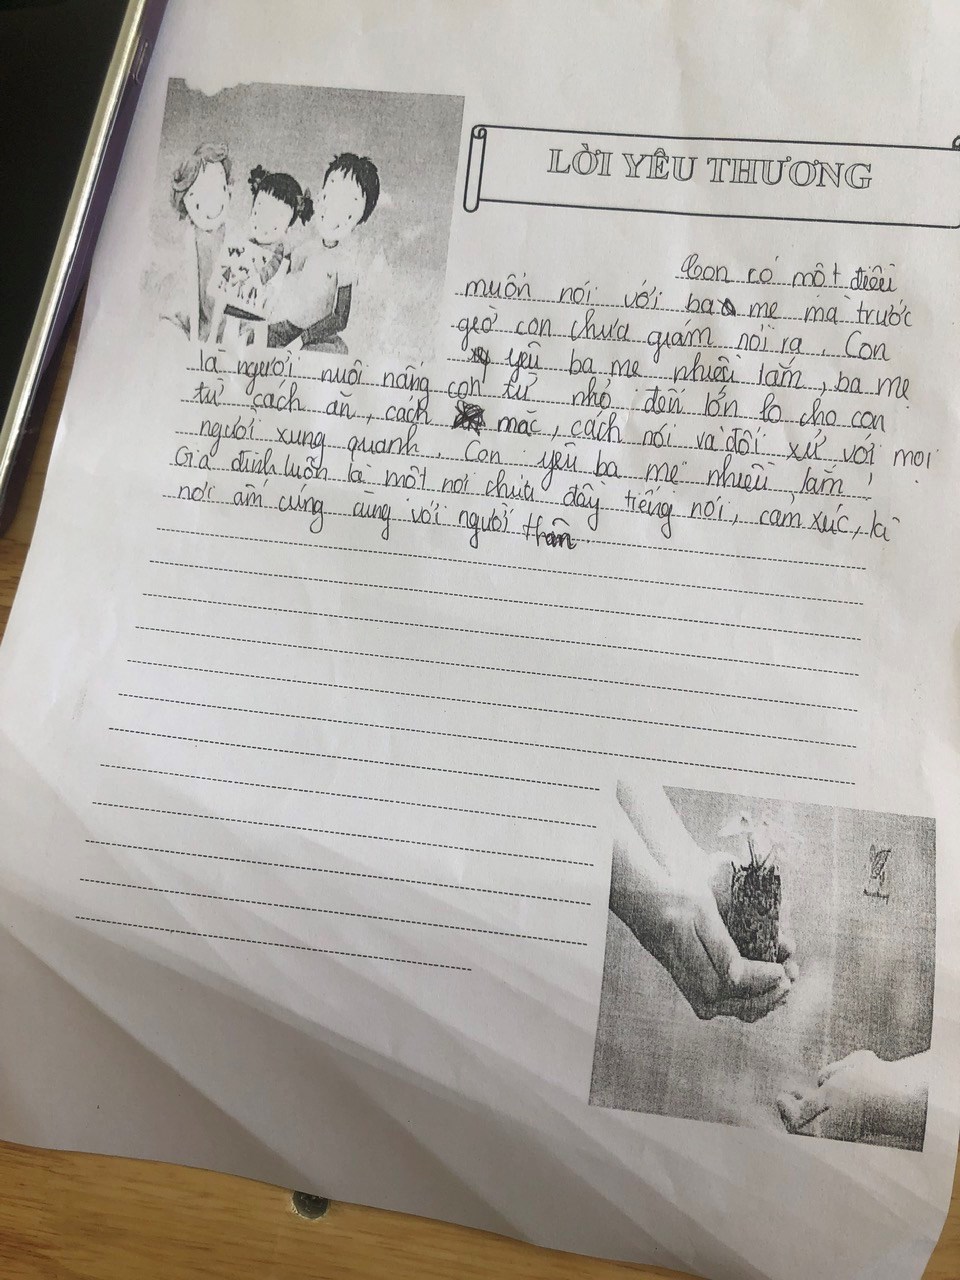 LỜI YÊU THƯƠNG
Con có một điều
muốn nói với ba mẹ mà trước
giờ con chưa giám nói ra. Con
yêu ba mẹ nhiều lắm, ba mẹ
là người nuôi nấng con từ nhỏ đến lớn lo cho con
từ cách ăn, cách mặc, cách nói và đối xử với mọi
người xung quanh. Con yêu ba mẹ nhiều lắm!
Gia đình luôn là một nơi chứa đầy tiếng nói, cảm xúc, là
nơi ấm cúng cùng với người thân